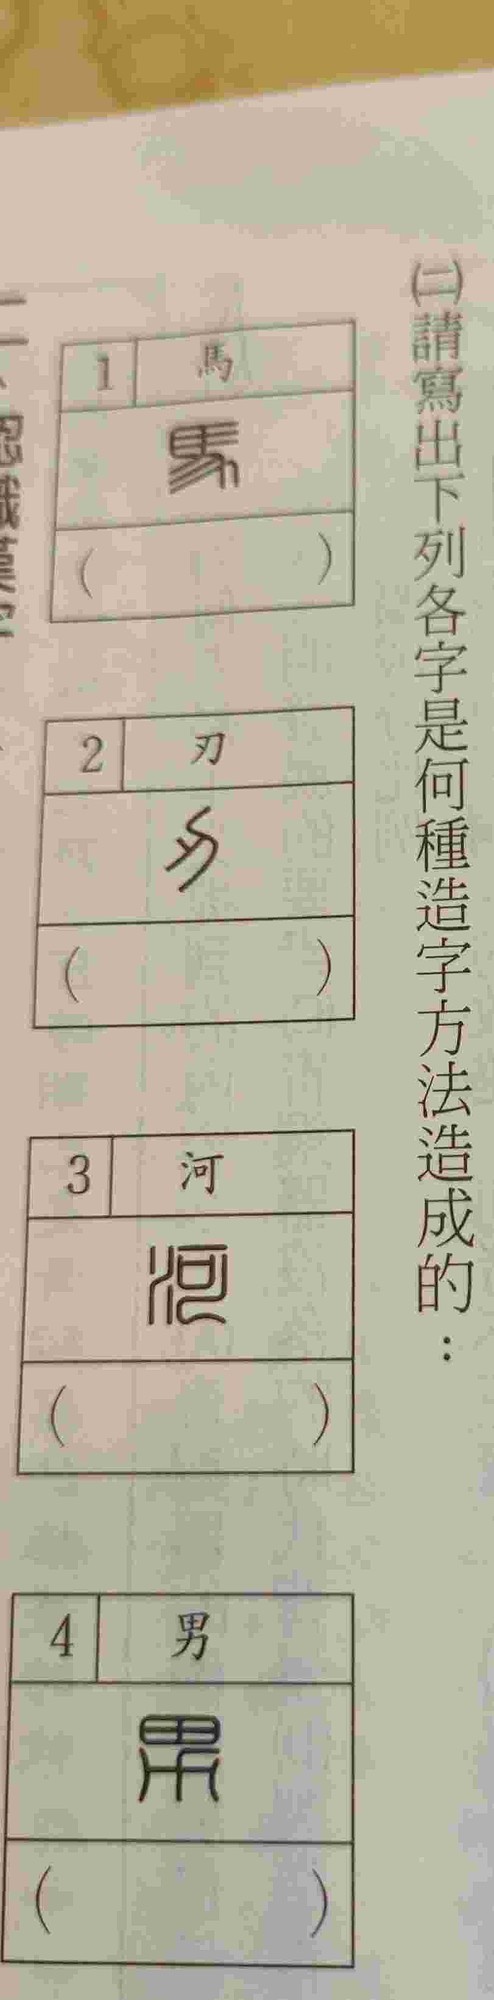 ㈡請寫出下列各字是何種造字方法造成的：
1 馬
馬
（　　　）
2 刃
刃
（　　　）
3 河
河
（　　　）
4 男
男
（　　　）
二、認識漢字